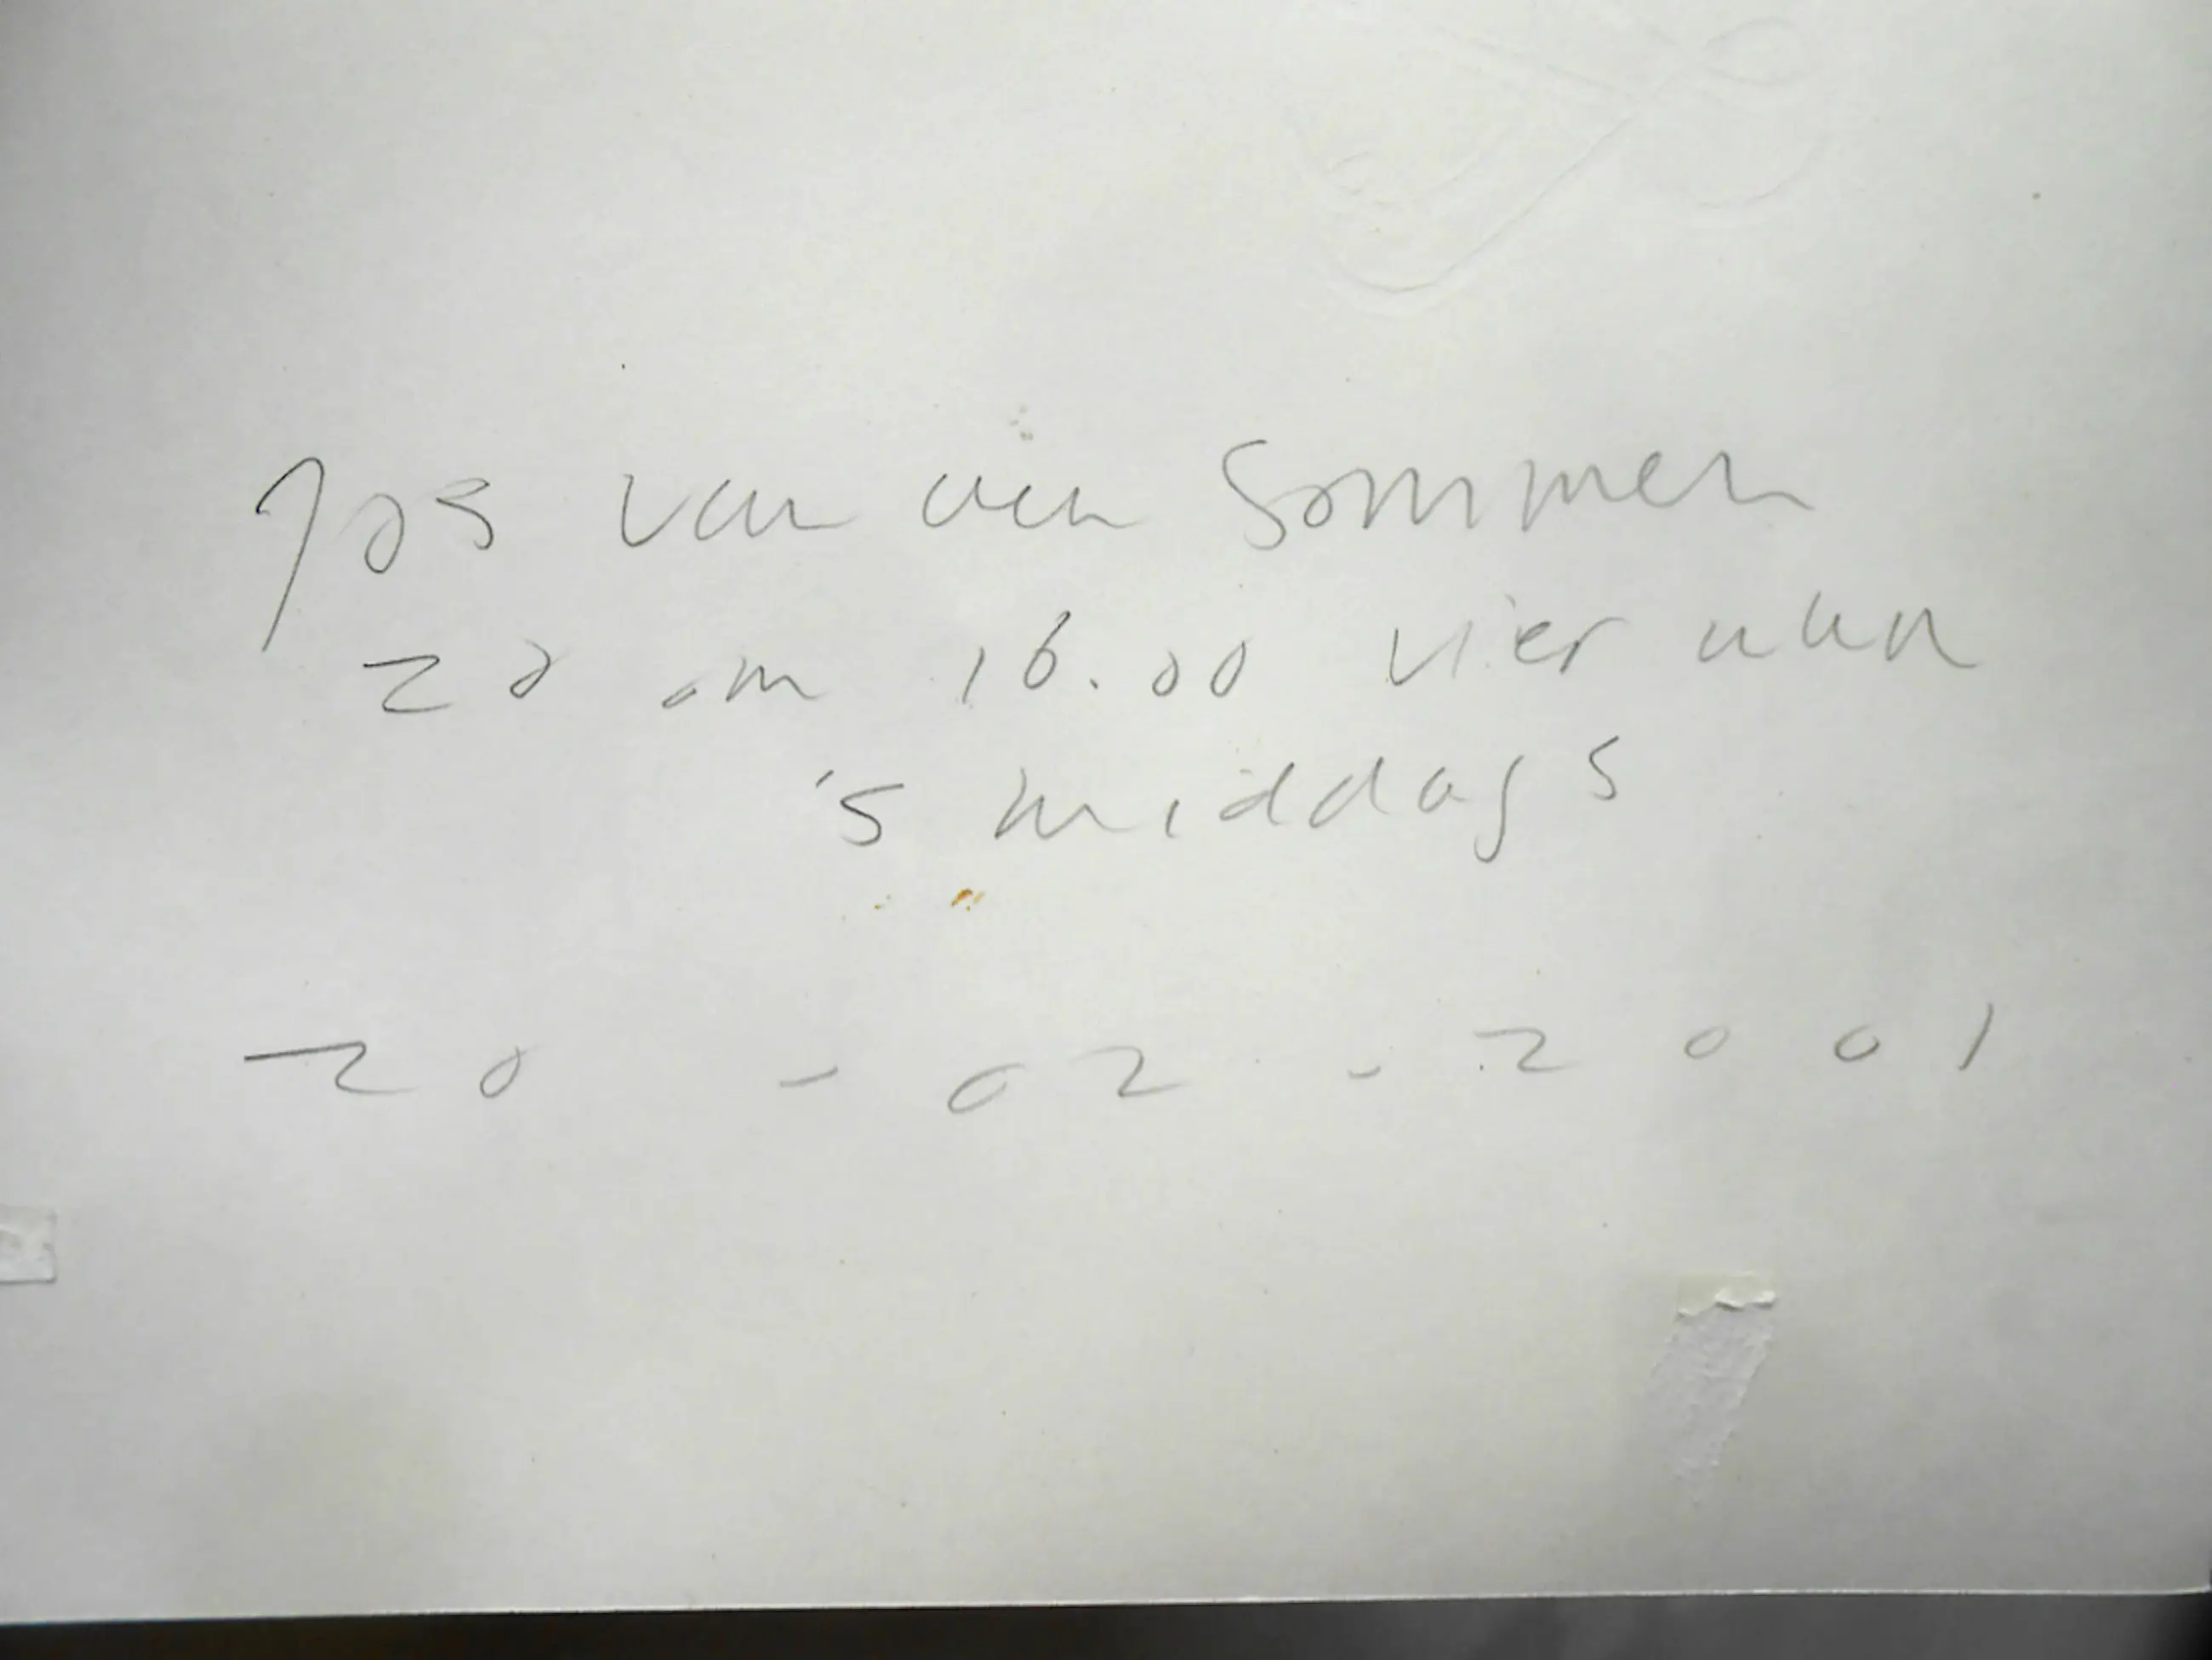 Jos van den Sommen
20 om 16.00 vier uur
's middags
20 - 02 - 2001